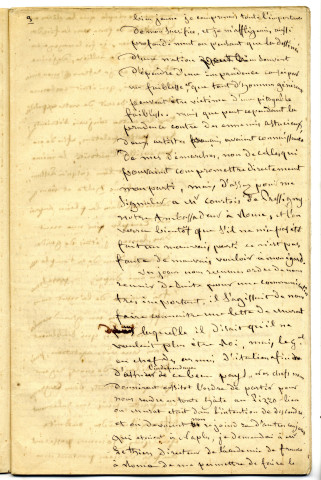 3
bien jeune je comprenais toute l'importance
de mon sacrifice, et je m'affligeais aussi
profondément en pensant que les destinées
d'une nation souvent
dépendre d'une imprudence, causée par
une faiblesse que tant d'hommes généreux
peuvent être victime d'un pitoyable
faiblesse, mais que peut cependant la
prudence contre des ennemis astucieux,
deux artistes avaient connaissance
de mes démarches, non de celles qui
pouvaient compromettre directement
mon parti, mais d'assez pour me
signaler à Mr Courtois de Pressigny
notre Ambassadeur à Rome, et l'on
verra bientôt que s'il ne m'a pas
fait un mauvais parti ce n'est pas
faute de mauvais vouloir à mon égard.
jours nous reçumes ordre de nous
réunir de suite pour une communication
très importante, il s'agissait de nous
faire connaitre une lettre de murat
dans laquelle il disait qu'il ne
voulait plus être Roi, mais le Gal
en chef des armées d'italie afin
d'assurer l'indépendance de ce beau pays,
donnèrent aussitot l'ordre de partir pour
nous rendre en toute hâte au Pizzo lieu
ou murat était dans l'intention de descendre,
et on devait rejoindre d'autres
qui étaient à Naples, je demandai à
directeur de l'academie de france
à Rome de me permettre de faire le